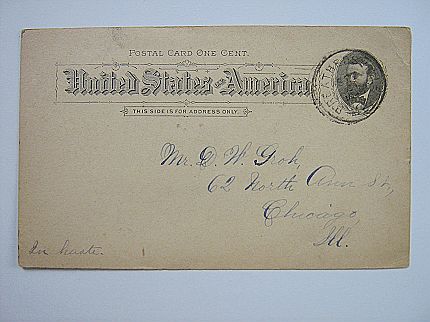 POSTAL CARD ONE CENT.
United States of America
THIS SIDE IS FOR ADDRESS ONLY.
Mr. D. W. Groh,
62 North Ann St,
Chicago,
Ill.
In haste.